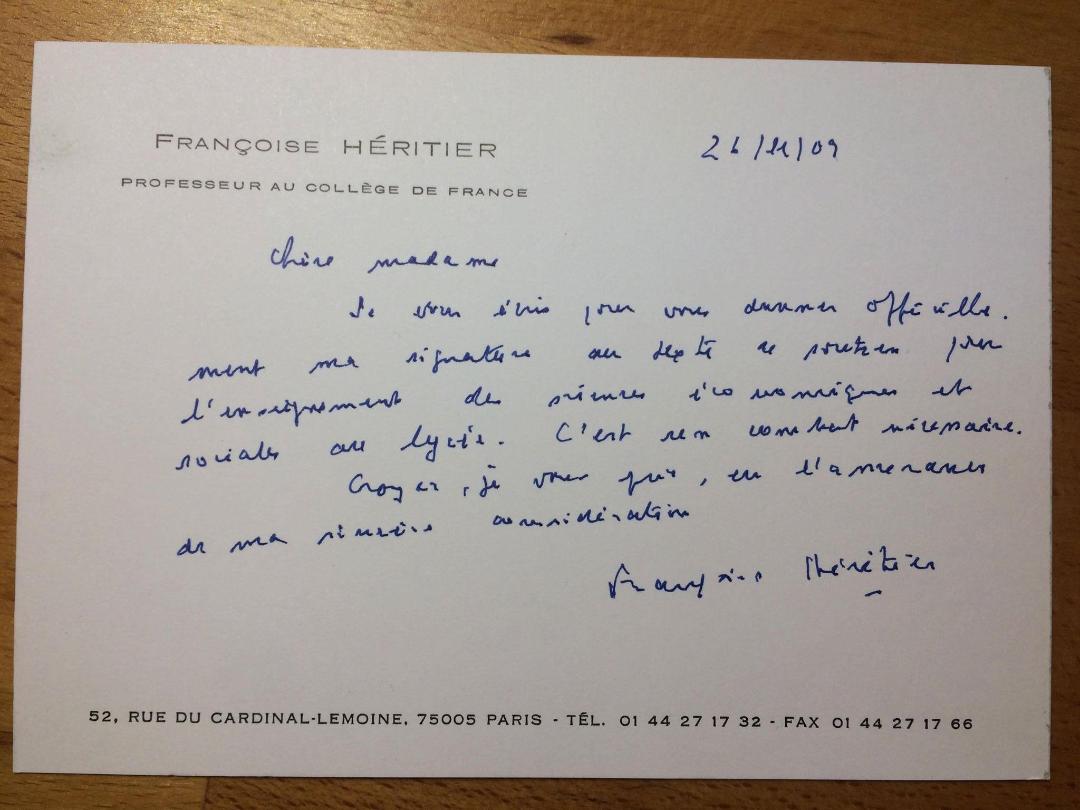 FRANÇOISE HÉRITIER
26/11/09
PROFESSEUR AU COLLÈGE DE FRANCE
Chère madame
Je vous écris pour vous donner officielle-
ment ma signature au texte de soutien pour
l'enseignement des sciences économiques et
sociales au lycée. C'est un combat nécessaire.
Croyez, je vous prie, en l'assurance
de ma sincère considération
Françoise Héritier
52, RUE DU CARDINAL-LEMOINE, 75005 PARIS - TÉL. 01 44 27 17 32 - FAX 01 44 27 17 66